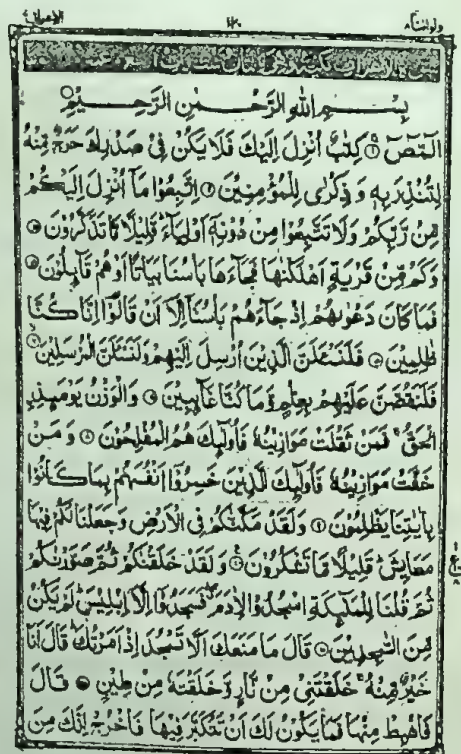 ولواننا ٨
الاعراف ٧
بِسْمِ اللهِ الرَّحْمٰنِ الرَّحِيْمِ
الٓمّٓصٓ ۚ كِتٰبٌ اُنْزِلَ اِلَيْكَ فَلَا يَكُنْ فِيْ صَدْرِكَ حَرَجٌ مِّنْهُ
لِتُنْذِرَ بِهٖ وَ ذِكْرٰى لِلْمُؤْمِنِيْنَ ۝ اِتَّبِعُوْا مَآ اُنْزِلَ اِلَيْكُمْ
مِّنْ رَّبِّكُمْ وَلَا تَتَّبِعُوْا مِنْ دُوْنِهٖٓ اَوْلِيَآءَ ؕ قَلِيْلًا مَّا تَذَكَّرُوْنَ ۝
وَكَمْ مِّنْ قَرْيَةٍ اَهْلَكْنٰهَا فَجَآءَهَا بَاْسُنَا بَيَاتًا اَوْ هُمْ قَآئِلُوْنَ ۝
فَمَا كَانَ دَعْوٰىهُمْ اِذْ جَآءَهُمْ بَاْسُنَآ اِلَّآ اَنْ قَالُوْٓا اِنَّا كُنَّا
ظٰلِمِيْنَ ۝ فَلَنَسْـَٔلَنَّ الَّذِيْنَ اُرْسِلَ اِلَيْهِمْ وَلَنَسْـَٔلَنَّ الْمُرْسَلِيْنَ ۝
فَلَنَقُصَّنَّ عَلَيْهِمْ بِعِلْمٍ وَّمَا كُنَّا غَآئِبِيْنَ ۝ وَالْوَزْنُ يَوْمَئِذِ
اِۨلْحَقُّ ۚ فَمَنْ ثَقُلَتْ مَوَازِيْنُهٗ فَاُولٰٓئِكَ هُمُ الْمُفْلِحُوْنَ ۝ وَ مَنْ
خَفَّتْ مَوَازِيْنُهٗ فَاُولٰٓئِكَ الَّذِيْنَ خَسِرُوْٓا اَنْفُسَهُمْ بِمَا كَانُوْا
بِاٰيٰتِنَا يَظْلِمُوْنَ ۝ وَلَقَدْ مَكَّنّٰكُمْ فِي الْاَرْضِ وَجَعَلْنَا لَكُمْ فِيْهَا
مَعَايِشَ ؕ قَلِيْلًا مَّا تَشْكُرُوْنَ ۝ وَلَقَدْ خَلَقْنٰكُمْ ثُمَّ صَوَّرْنٰكُمْ
ثُمَّ قُلْنَا لِلْمَلٰٓئِكَةِ اسْجُدُوْا لِاٰدَمَ ۖ فَسَجَدُوْٓا اِلَّآ اِبْلِيْسَ ؕ لَمْ يَكُنْ
مِّنَ السّٰجِدِيْنَ ۝ قَالَ مَا مَنَعَكَ اَلَّا تَسْجُدَ اِذْ اَمَرْتُكَ ؕ قَالَ اَنَا
خَيْرٌ مِّنْهُ ۚ خَلَقْتَنِيْ مِنْ نَّارٍ وَّخَلَقْتَهٗ مِنْ طِيْنٍ ۝ قَالَ
فَاهْبِطْ مِنْهَا فَمَا يَكُوْنُ لَكَ اَنْ تَتَكَبَّرَ فِيْهَا فَاخْرُجْ اِنَّكَ مِنَ